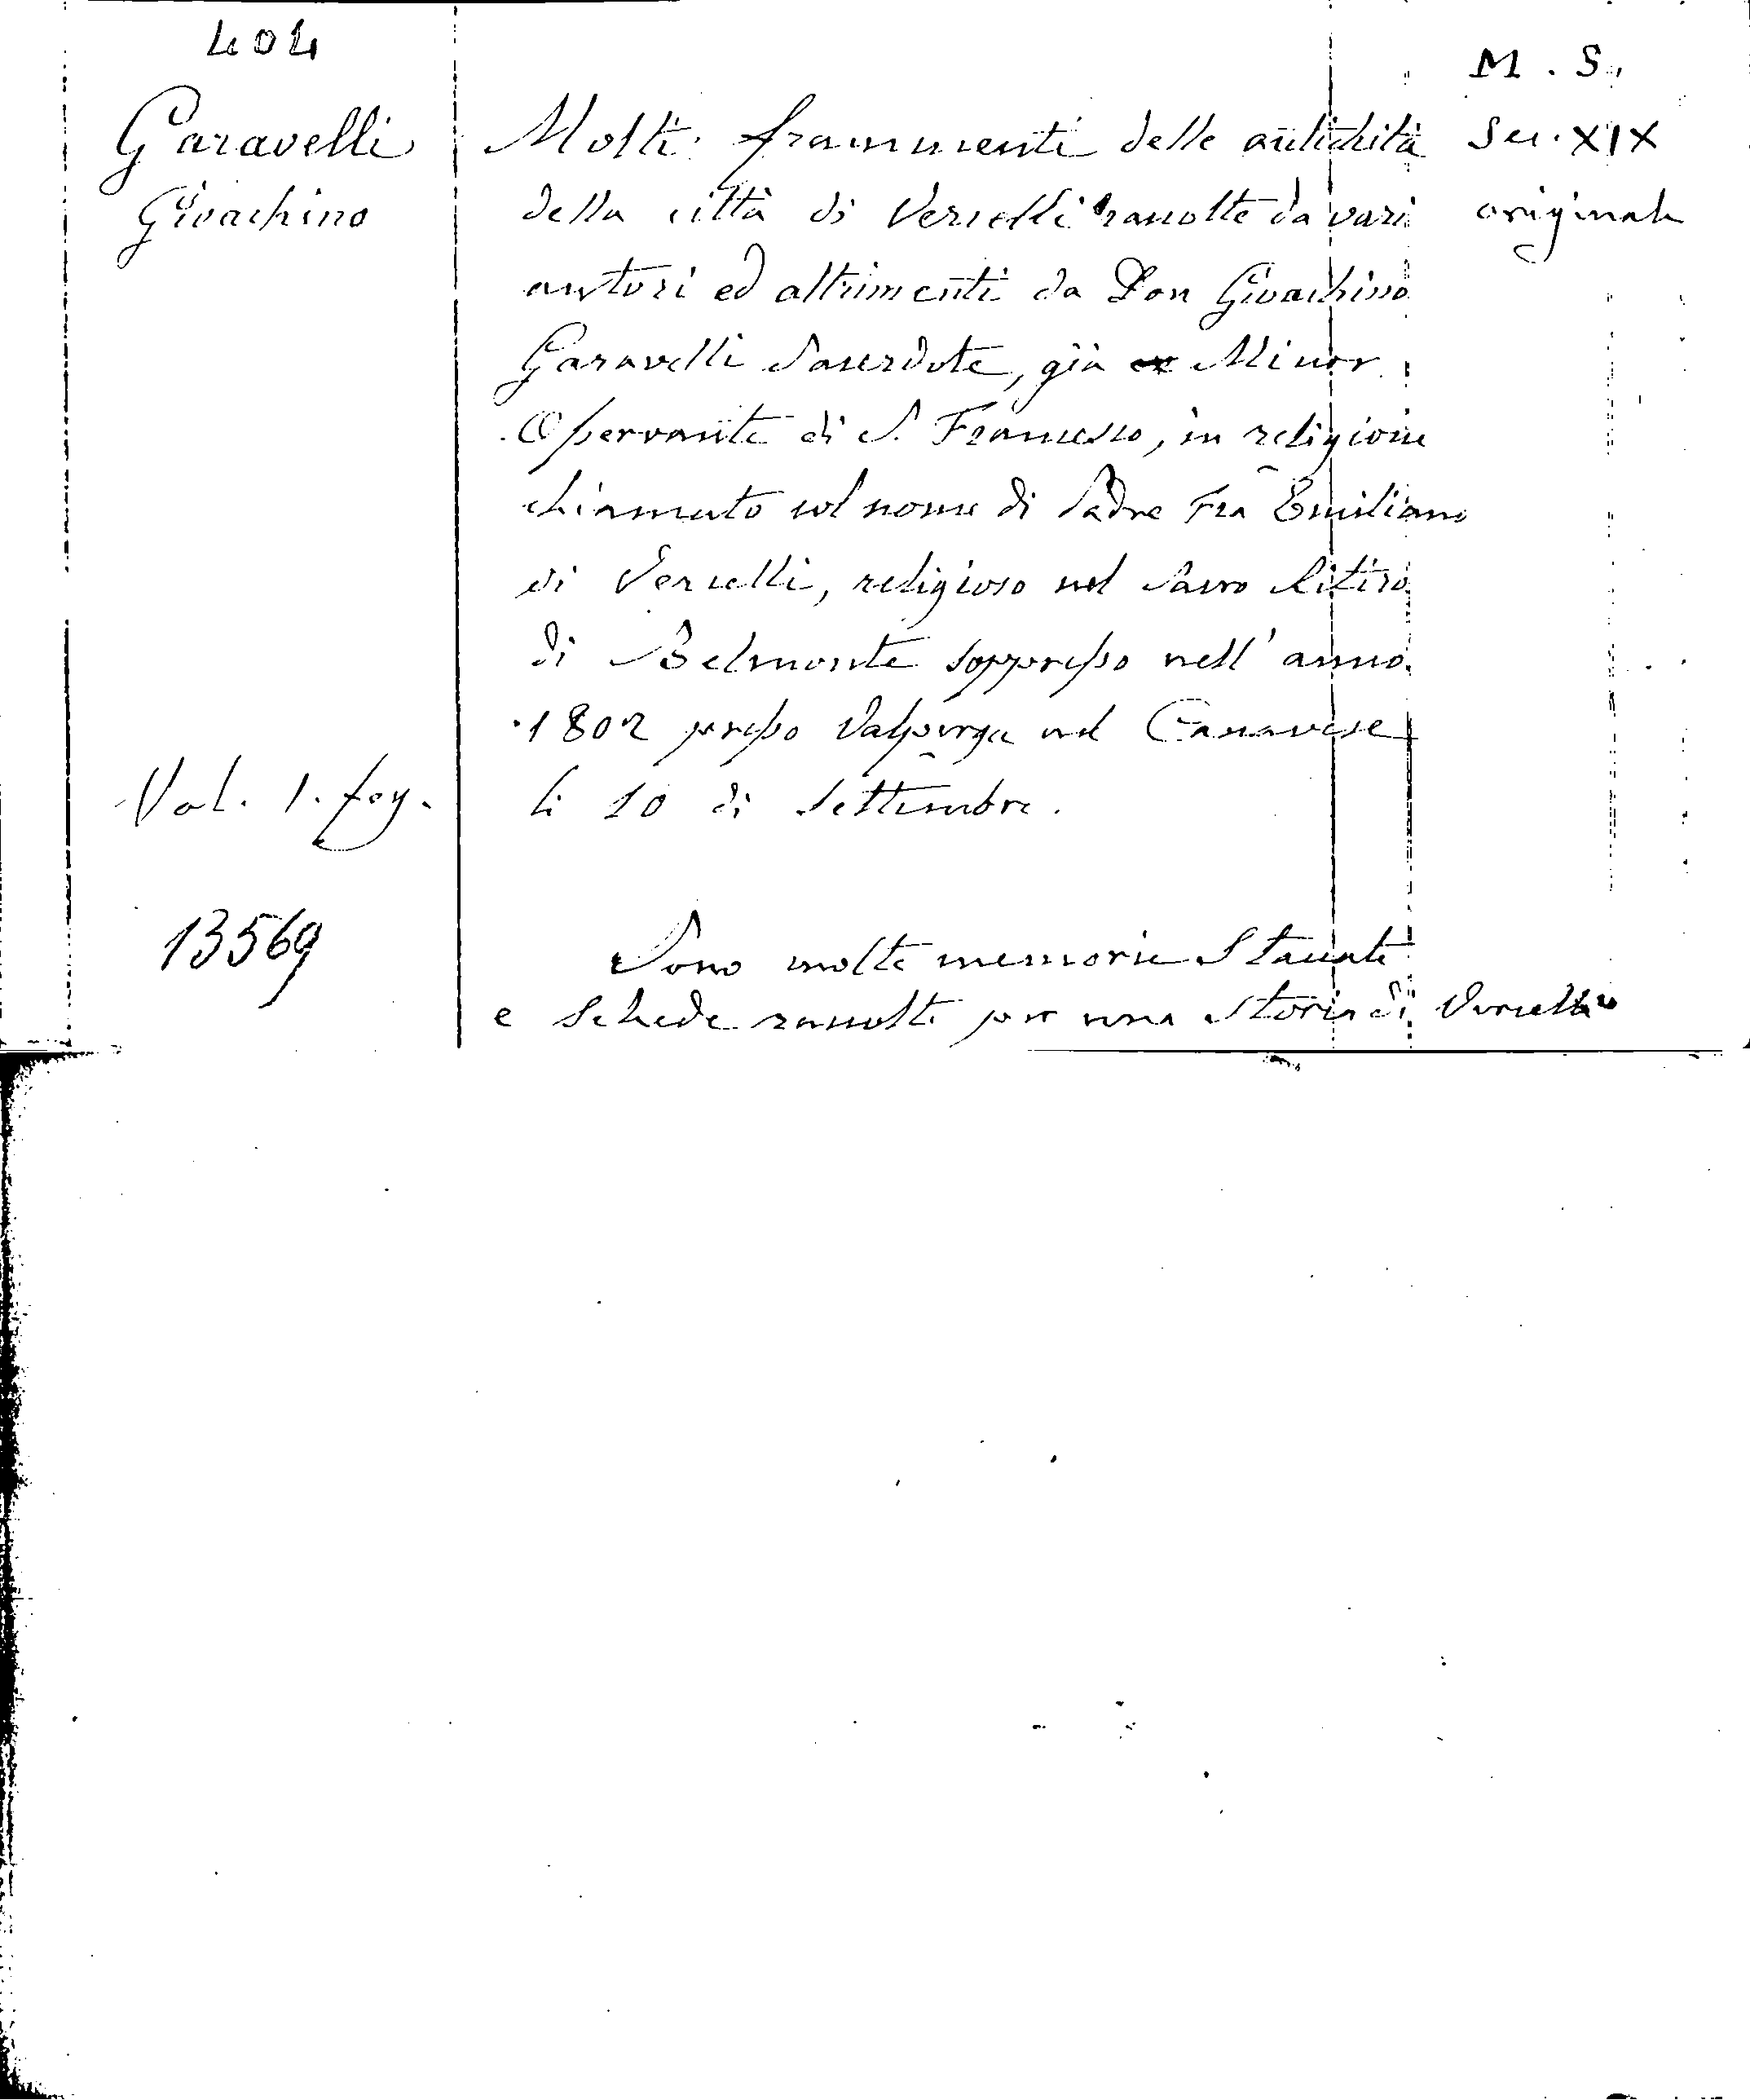 404
M. S.
Garavelli
Gioachino
Molti frammenti delle antichità
della città di Vercelli raccolte da vari
autori ed altrimenti da Don Gioachino
Garavelli Sacerdote, già ex Minor
Osservante di S. Francesco, in religione
chiamato col nome di Padre Fra Emiliano
di Vercelli, religioso nel Sacro Ritiro
di Belmonte soppresso nell' anno
1802 presso Valperga nel Canavese
li 10 di Settembre.
Sec. XIX
originale
Vol. 1. fog.
13569
Sono molte memorie Staccate
e Schede raccolte per una Storia di Vercelli